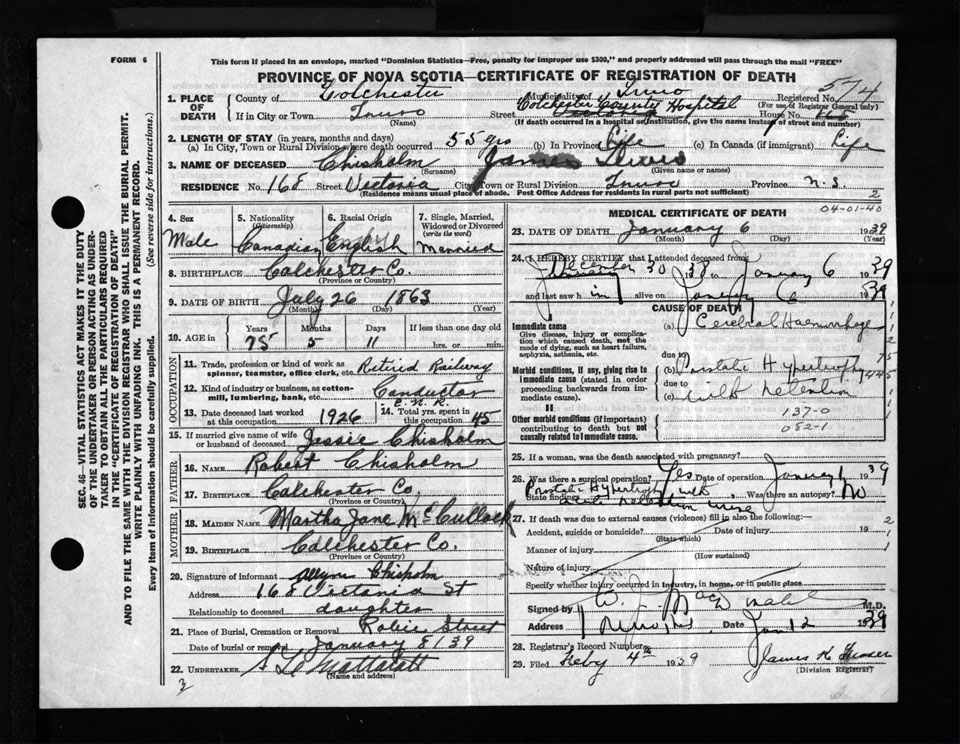 FORM 6
This form if placed in an envelope, marked "Dominion Statistics—Free, penalty for improper use $300," and properly addressed will pass through the mail "FREE"
PROVINCE OF NOVA SCOTIA—CERTIFICATE OF REGISTRATION OF DEATH
574
1. PLACE OF DEATH
County of Colchester Municipality of Truro Registered No.
(For use of Registrar General only)
If in City or Town Truro Street Colchester County Hospital House No. 165
(Name) (If death occurred in a hospital or institution, give the name instead of street and number)
2. LENGTH OF STAY (in years, months and days)
(a) In City, Town or Rural Division where death occurred 55 yrs (b) In Province Life (c) In Canada (if immigrant) Life
3. NAME OF DECEASED Chisholm James Lewis
(Surname) (Given name or names)
RESIDENCE No. 168 Street Victoria City, Town or Rural Division Truro Province N.S.
(Residence means usual place of abode. Post Office Address for residents in rural parts not sufficient) 2
4. Sex
Male
5. Nationality (Citizenship)
Canadian
6. Racial Origin
English
7. Single, Married, Widowed or Divorced (write the word)
Married
8. BIRTHPLACE Colchester Co.
(Province or Country)
9. DATE OF BIRTH July 26 1863
(Month) (Day) (Year)
10. AGE in Years Months Days If less than one day old
75 5 11 hrs. or min.
OCCUPATION
11. Trade, profession or kind of work as spinner, teamster, office clerk, etc. Retired Railway
12. Kind of industry or business, as cotton-mill, lumbering, bank, etc. Conductor
C.N.R.
13. Date deceased last worked at this occupation 1926
14. Total yrs. spent in this occupation 45
15. If married give name of wife or husband of deceased Jessie Chisholm
FATHER
16. NAME Robert Chisholm
17. BIRTHPLACE Colchester Co.
(Province or Country)
MOTHER
18. MAIDEN NAME Martha Jane McCullock
19. BIRTHPLACE Colchester Co.
(Province or Country)
20. Signature of informant Chisholm
Address 168 Victoria St
Relationship to deceased daughter
21. Place of Burial, Cremation or Removal Robie Street
Date of burial or removal January 8/39
22. UNDERTAKER
(Name and address)
MEDICAL CERTIFICATE OF DEATH 04-01-40
23. DATE OF DEATH January 6 1939
(Month) (Day) (Year)
24. I HEREBY CERTIFY that I attended deceased from
December 30 1938 to January 6 1939
and last saw him alive on January 6 1939
CAUSE OF DEATH
Immediate cause
Give disease, injury or complication which caused death, not the mode of dying, such as heart failure, asphyxia, asthenia, etc.
(a) Cerebral Haemorrhage
due to
Morbid conditions, if any, giving rise to immediate cause (stated in order proceeding backwards from immediate cause).
(b) Prostate Hypertrophy
due to
(c) with retention
II
Other morbid conditions (if important) contributing to death but not causally related to immediate cause.
137-0
082-1
25. If a woman, was the death associated with pregnancy?
26. Was there a surgical operation? Yes Date of operation January 1939
State findings Prostate Hypertrophy with retention urine Was there an autopsy? No
27. If death was due to external causes (violence) fill in also the following:—
Accident, suicide or homicide? Date of injury 19
(State which)
Manner of injury
(How sustained)
Nature of injury
Specify whether injury occurred in industry, in home, or in public place
Signed by M.D.
Address Truro, N.S. Date Jan 12 1939
28. Registrar's Record Number
29. Filed Feby 4th 1939 James K.
(Division Registrar)
SEC. 46—VITAL STATISTICS ACT MAKES IT THE DUTY
OF THE UNDERTAKER OR PERSON ACTING AS UNDER-
TAKER TO OBTAIN ALL THE PARTICULARS REQUIRED
IN THE "CERTIFICATE OF REGISTRATION OF DEATH"
AND TO FILE THE SAME WITH THE DIVISION REGISTRAR WHO SHALL ISSUE THE BURIAL PERMIT.
WRITE PLAINLY WITH UNFADING INK. THIS IS A PERMANENT RECORD.
Every item of information should be carefully supplied. (See reverse side for instructions.)